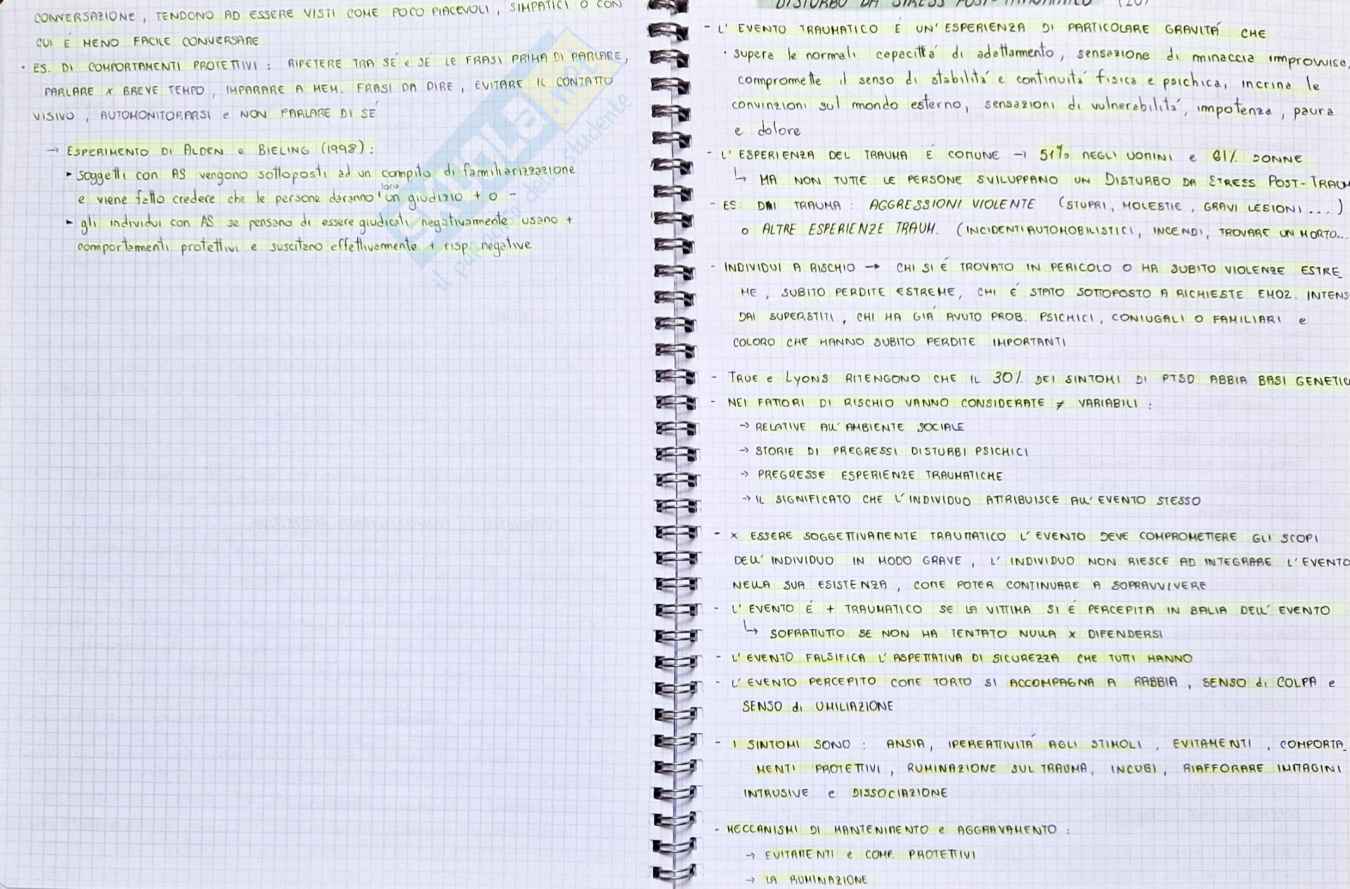 CONVERSAZIONE, TENDONO AD ESSERE VISTI COME POCO PIACEVOLI, SIMPATICI O CON
CUI É MENO FACILE CONVERSARE
· ES. DI COMPORTAMENTI PROTETTIVI : RIPETERE TRA SÉ e SÉ LE FRASI PRIMA DI PARLARE,
PARLARE x BREVE TEMPO, IMPARARE A MEM. FRASI DA DIRE, EVITARE IL CONTATTO
VISIVO, AUTOMONITORARSI e NON PARLARE DI SÉ
→ ESPERIMENTO DI ALDEN e BIELING (1998) :
▸ soggetti con AS vengono sottoposti ad un compito di familiarizzazione
e viene fatto credere che le persone daranno loro un giudizio + o -
▸ gli individui con AS se pensano di essere giudicati negativamente usano +
comportamenti protettivi e suscitano effettivamente + risp. negative
SKUOLA.net
il paradiso dello studente
DISTURBO DA STRESS POST-TRAUMATICO (20)
- L'EVENTO TRAUMATICO É UN'ESPERIENZA DI PARTICOLARE GRAVITÁ CHE
· supera le normali capacittá di adattamento, sensazione di minaccia improvvisa,
compromette il senso di stabilitá e continuitá fisica e psichica, incrina le
convinzioni sul mondo esterno, sensazioni di vulnerabilitá, impotenza, paura
e dolore
- L'ESPERIENZA DEL TRAUMA É COMUNE → 51% NEGLI UOMINI e 81% DONNE
↳ MA NON TUTTE LE PERSONE SVILUPPANO UN DISTURBO DA STRESS POST-TRAUM
- ES. DAI TRAUMA : AGGRESSIONI VIOLENTE (STUPRI, MOLESTIE, GRAVI LESIONI ....)
o ALTRE ESPERIENZE TRAUM. (INCIDENTI AUTOMOBILISTICI, INCENDI, TROVARE UN MORTO...
- INDIVIDUI A RISCHIO → CHI SI É TROVATO IN PERICOLO O HA SUBITO VIOLENZE ESTRE
ME, SUBITO PERDITE ESTREME, CHI É STATO SOTTOPOSTO A RICHIESTE EMOZ. INTENS
DAI SUPERSTITI, CHI HA GIÁ AVUTO PROB. PSICHICI, CONIUGALI O FAMILIARI e
COLORO CHE HANNO SUBITO PERDITE IMPORTANTI
- TRUE e LYONS RITENGONO CHE IL 30% DEI SINTOMI DI PTSD ABBIA BASI GENETIC
- NEI FATTORI DI RISCHIO VANNO CONSIDERATE ≠ VARIABILI :
→ RELATIVE ALL'AMBIENTE SOCIALE
→ STORIE DI PREGRESSI DISTURBI PSICHICI
→ PREGRESSE ESPERIENZE TRAUMATICHE
→ IL SIGNIFICATO CHE L'INDIVIDUO ATTRIBUISCE ALL'EVENTO STESSO
- x ESSERE SOGGETTIVAMENTE TRAUMATICO L'EVENTO DEVE COMPROMETTERE GLI SCOPI
DELL'INDIVIDUO IN MODO GRAVE, L'INDIVIDUO NON RIESCE AD INTEGRARE L'EVENTO
NELLA SUA ESISTENZA, COME POTER CONTINUARE A SOPRAVVIVERE
- L'EVENTO É + TRAUMATICO SE LA VITTIMA SI É PERCEPITA IN BALIA DELL'EVENTO
↳ SOPRATTUTTO SE NON HA TENTATO NULLA x DIFENDERSI
- L'EVENTO FALSIFICA L'ASPETTATIVA DI SICUREZZA CHE TUTTI HANNO
- L'EVENTO PERCEPITO COME TORTO SI ACCOMPAGNA A RABBIA, SENSO di COLPA e
SENSO di UMILIAZIONE
- I SINTOMI SONO : ANSIA, IPEREATTIVITÁ AGLI STIMOLI, EVITAMENTI, COMPORTA
MENTI PROTETTIVI, RUMINAZIONE SUL TRAUMA, INCUBI, RIAFFORARE IMMAGINI
INTRUSIVE e DISSOCIAZIONE
- MECCANISMI DI MANTENIMENTO e AGGRAVAMENTO :
→ EVITAMENTI e COMP. PROTETTIVI
→ LA RUMINAZIONE